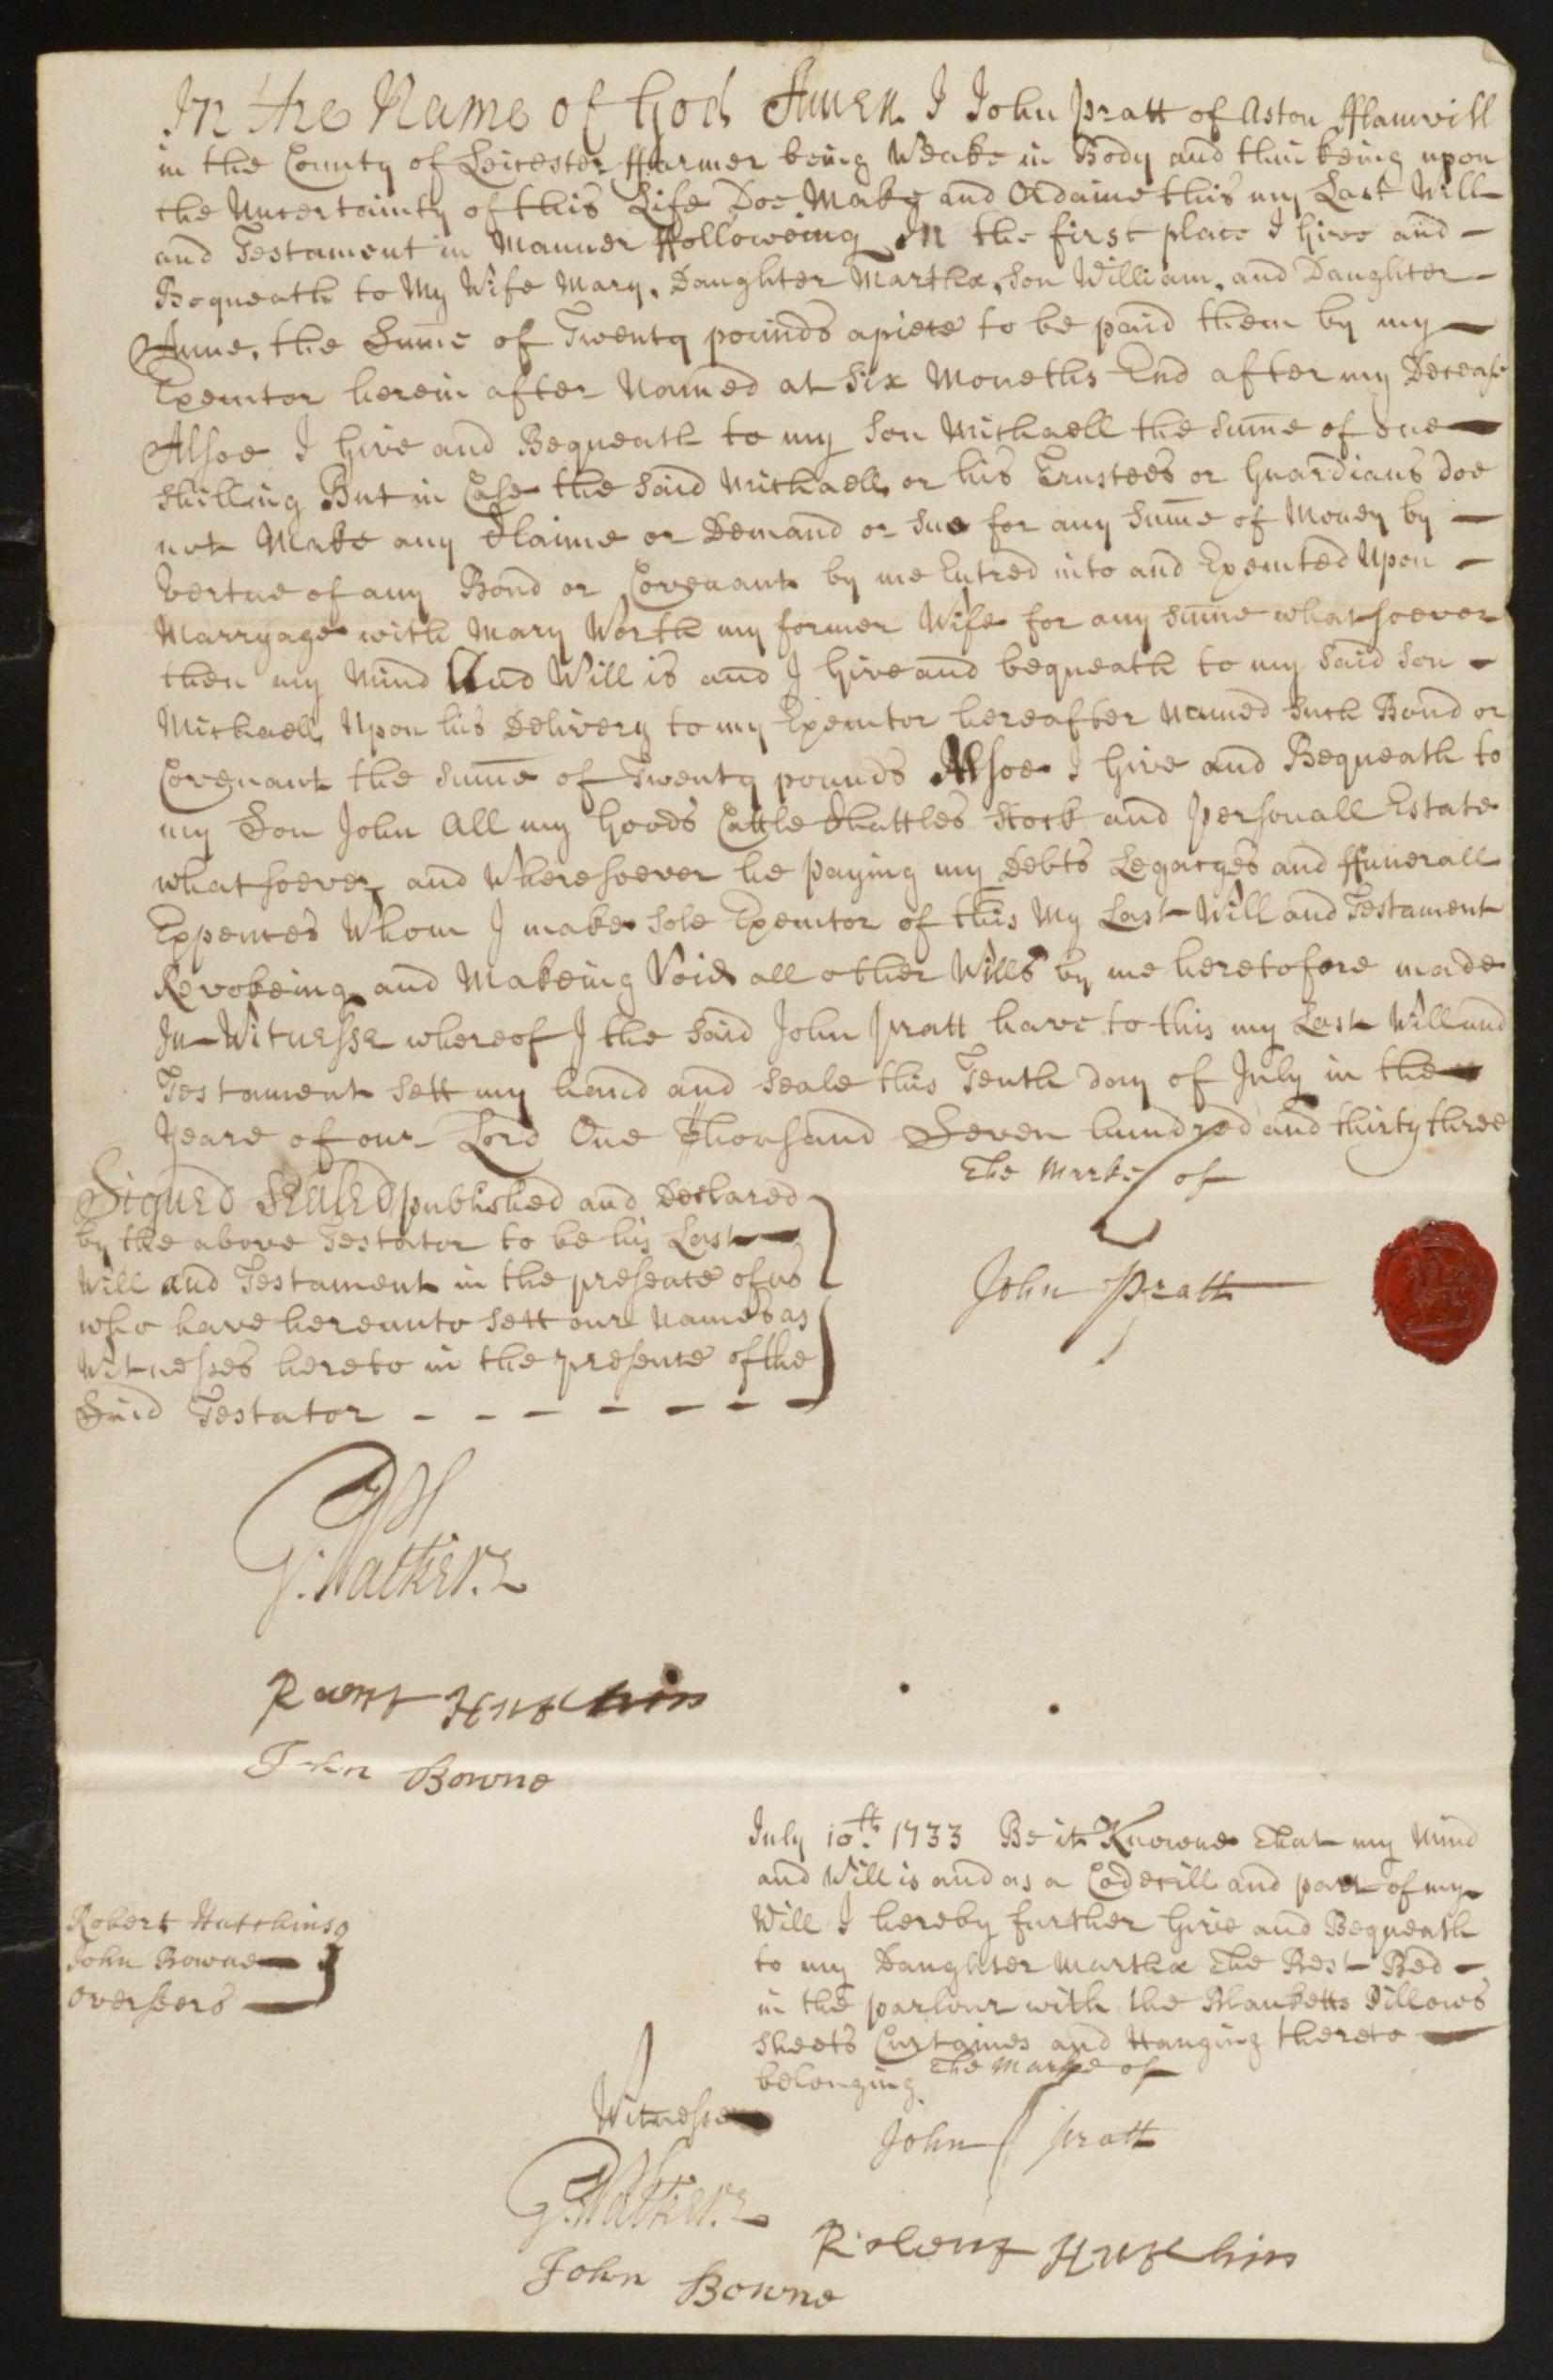 In the Name of God Amen I John Pratt of Aston fflamvill
in the County of Leicester ffarmer being Weake in Body and thinkeing upon
the Uncertainty of this Life Doe Make and Ordaine this my Last Will
and Testament in Manner ffolloweing In the first place I Give and
Bequeath to My Wife Mary, Daughter Martha, Son William, and Daughter
Anne, the Sume of Twenty pounds apiece to be paid them by my
Executor herein after Named at Six Moneths End after my Decease
Alsoe I Give and Bequeath to my Son Michaell the Sume of one
Shilling But in Case the Said Michaell or his Trustees or Guardians doe
not Make any Claime or Demand or Sue for any Sume of Money by
Vertue of any Bond or Covenant by me Entred into and Executed Upon
Marryage with Mary Worth my former Wife for any Sume whatsoever
then my Mind And Will is and I Give and bequeath to my Said Son
Michaell Upon his Delivery to my Executor hereafter Named Such Bond or
Covenant the Sume of Twenty pounds Alsoe I Give and Bequeath to
my Son John All my Goods Cattle Chattles Stock and Personall Estate
whatsoever and Wheresoever he Paying my Debts Legacyes and ffunerall
Expences Whom I make Sole Executor of this My Last Will and Testament
Revokeing and Makeing Void all other Wills by me heretofore made
In Witnesse whereof I the Said John Pratt have to this my Last Will and
Testament Sett my hand and Seale this Tenth day of July in the
Yeare of our Lord One Thousand Seven hundred and thirty three
Signed Sealed published and Declared
by the above Testator to be his Last
Will and Testament in the presence of us
who have hereunto Sett our Names as
Witnesses hereto in the presence of the
Said Testator
The Marke of
John Pratt
G: Walker
Hutchins
John Bowne
July 10th. 1733 Be it Knowne That my Mind
and Will is and as a Codecill and part of my
Will I hereby further Give and Bequeath
to my Daughter Martha The Best Bed
in the parlour with the Blanketts Pillows
Sheets Curtaines and Hanging thereto
belonging
The Marke of
John Pratt
Robert Hutchins
John Bowne
Overseers
Witnesses
G: Walker
Robert Hutchins
John Bowne